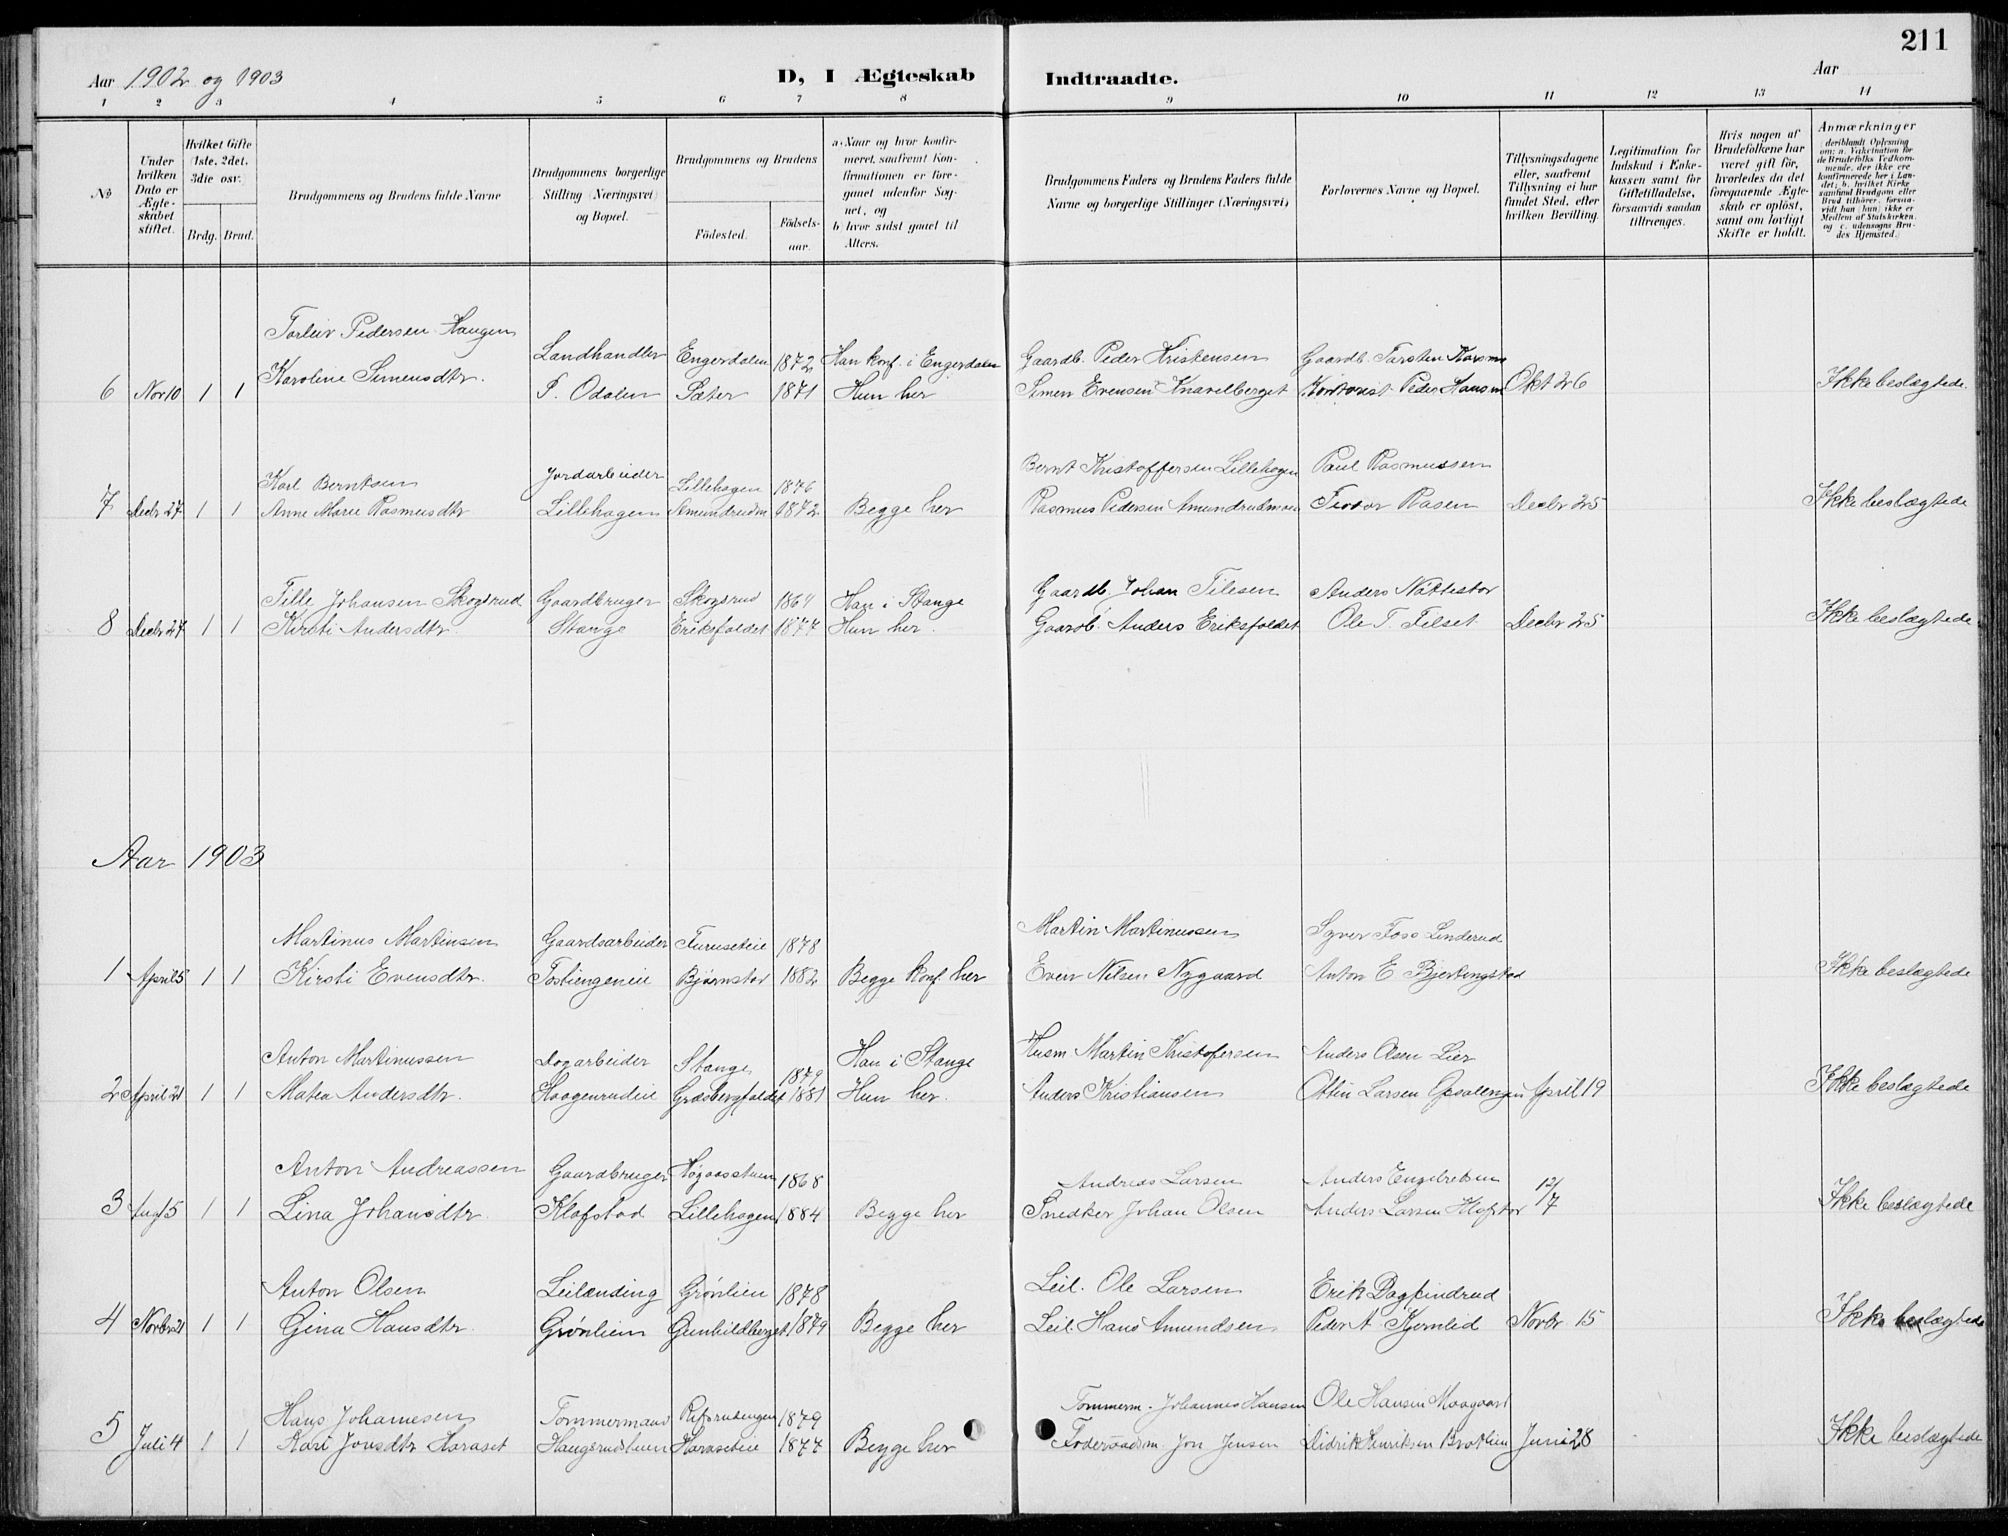 211
Aar 1902 og 1903
D, I Ægteskab Indtraadte.
Aar
1 2 3 4 5 6 7 8 9 10 11 12 13 14
No
Under hvilken Dato er Ægteskabet stiftet.
Hvilket Gifte (1ste, 2det, 3die osv.)
Brdg. Brud.
Brudgommens og Brudens fulde Navne
Brudgommens borgerlige Stilling (Næringsvei) og Bopæl.
Brudgommens og Brudens
Födested. Födsels-aar.
a) Naar og hvor konfirmeret, saafremt Konfirmationen er foregaaet udenfor Sognet, og
b) hvor sidst gaaet til Alters.
Brudgommens Faders og Brudens Faders fulde Navne og borgerlige Stillinger (Næringsvei)
Forlovernes Navne og Bopæl.
Tillysningsdagene eller, saafremt Tillysning ei har fundet Sted, efter hvilken Bevilling.
Legitimation for Indskud i Enkekassen samt for Giftetilladelse, forsaavidt saadan tiltrænges.
Hvis nogen af Brudefolkene har været gift för, hvorledes da det foregaaende Ægteskab er oplöst, samt om lovligt Skifte er holdt.
Anmærkninger (deriblandt Oplysning om: a. Vakcination for de Brudefolks Vedkommende, der ikke ere konfirmerede her i Landet; b. hvilket Kirkesamfund Brudgom eller Brud tilhörer, forsaavidt han (hun) ikke er Medlem af Statskirken, og c. udensogns Brudes Hjemsted.)
Torleiv Pedersen Haugen Landhandler Engerdalen 1872 Han konf. i Engerdalen Gaardb. Peder Kristensen Gaardb. Torsten
6 Nov 10 1 1 Karoline Simensdtr. S. Odalen Sæter 1871 Hun her Simen Evensen Knavelberget Kontorist Peder Hansen Okt 26 Ikke beslægtede
Karl Berntsen Jordarbeider Lillehagen 1876 Bernt Kristoffersen Lillehagen Paul Rasmussen
7 Decbr 27 1 1 Anne Marie Rasmusdtr Lillehagen Amundrudm 1872 Begge her Rasmus Pedersen Amundrudmoen Tevdor Rasen Decbr 25 Ikke beslægtede
Tille Johansen Skogsrud Gaardbruger Skogsrud 1864 Han i Stange Gaardb. Johan Tilesen Anders Nøttestor
8 Decbr 27 1 1 Kirsti Andersdtr. Stange Eriksfaldet 1877 Hun her. Gaardb. Anders Eriksfaldet Ole T. Filset Decbr 25 Ikke beslægtede
Aar 1903
Martinus Martinsen Gaardsarbeider Furuseteie 1878 Martin Martinussen Syver Foss Linderud
1 April 5 1 1 Kirsti Evensdtr. Tostiengeneie Bjørnstor 1882 Begge konf. her Even Nilsen Nygaard Anton E Bjerkengstad Ikke beslægtede
Anton Martinussen Dagarbeider Stange 1879 Han i Stange Husm Martin Kristofersen Anders Olsen Lier
2 April 21 1 1 Matea Andersdtr. Haagenrudeie Græsbergfaldet 1881 Hun her. Anders Kristiansen Otten Larsen Opsalengen April 19 Ikke beslægtede
Anton Andreassen Gaardbruger Høgaasstuen 1868 Andreas Larsen Anders Engebretsen 12/7
3 Aug 5 1 1 Lina Johansdtr. Klofstad Lillehagen 1884 Begge her Snedker Johan Olsen Anders Larsen Klofstor Ikke beslægtede
Anton Olsen Leilænding Grønlien 1878 Leil. Ole Larsen Erik Dagfindrud
4 Novbr 21 1 1 Gina Hansdtr. Grønlien Gunhildberget 1879 Begge her Leil. Hans Amundsen Peder A Kjernlid Novbr 15 Ikke beslægtede
Hans Johannesen Tømmermand Rifsrudengen 1879 Tømmerm. Johannes Hansen Ole Hansen Moagaard
5 Juli 4 1 1 Kari Jonsdtr Haraset Haugsrudstuen Haraseteie 1877 Begge her Foderaadsm. Jon Jensen Didrik Henriksen Bratlien Juni 28 Ikke beslægtede